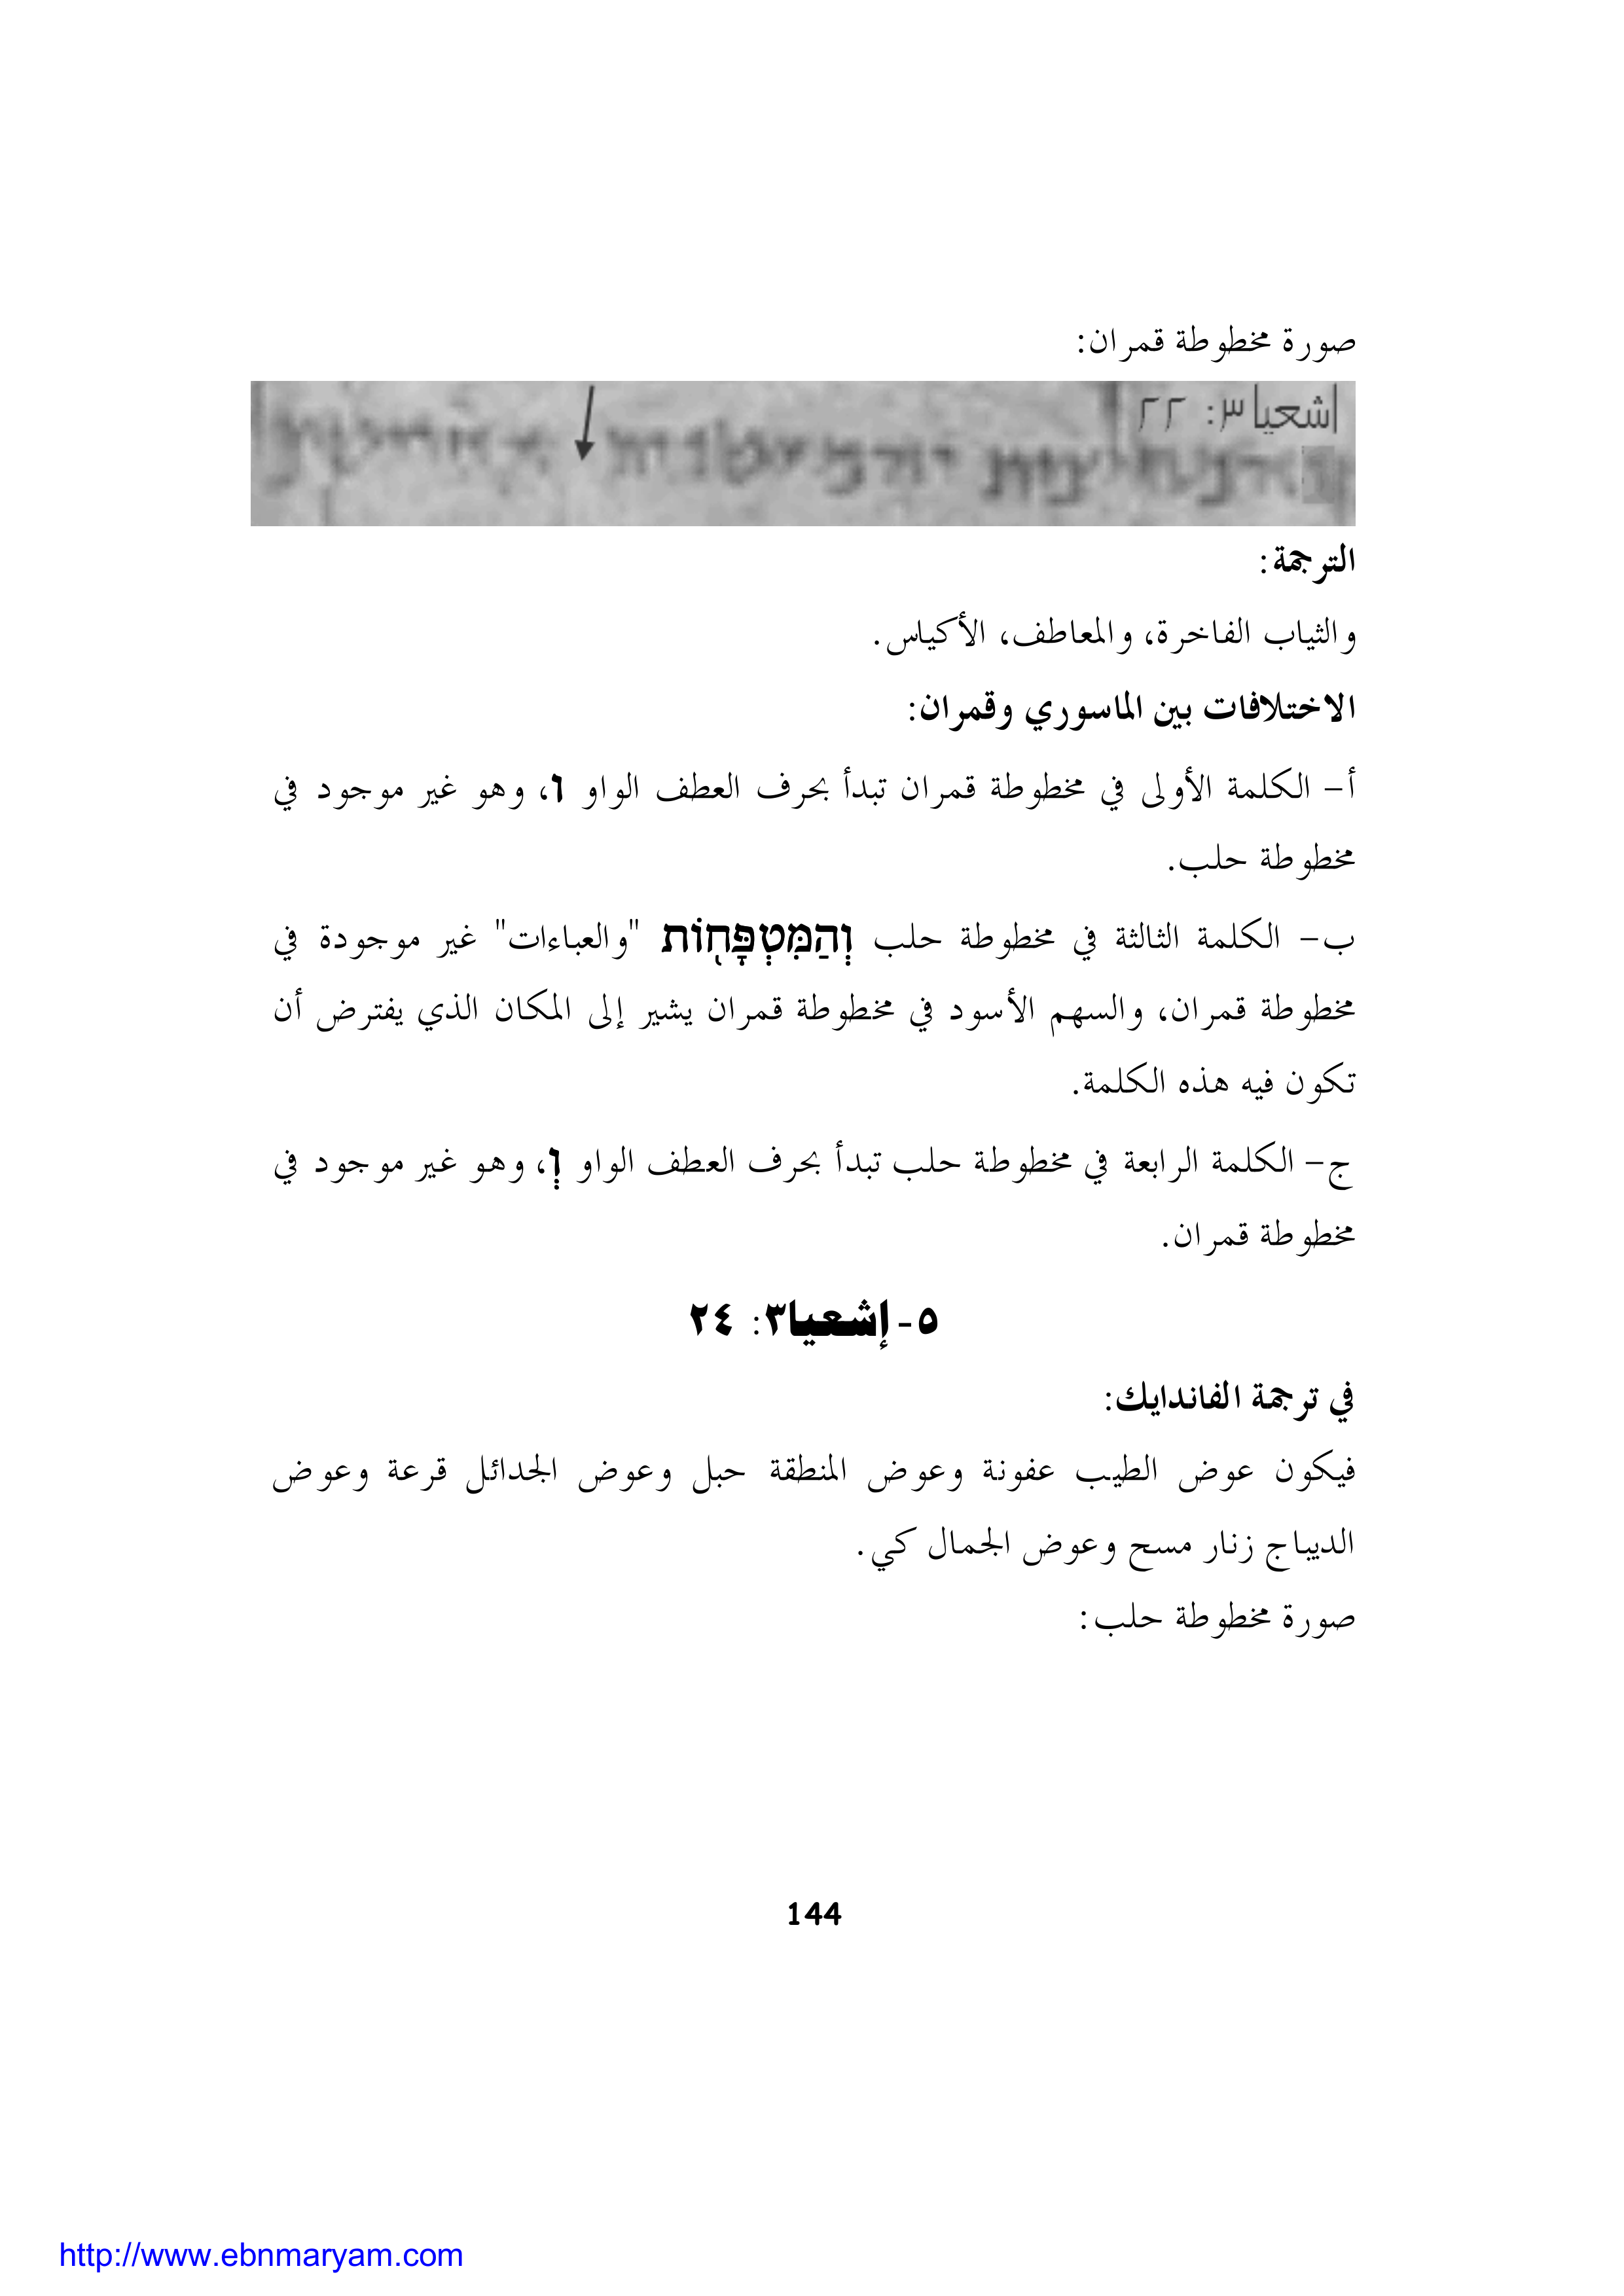 صورة مخطوطة قمران:
اشعيا ٣: ٢٢
الترجمة:
والثياب الفاخرة، والمعاطف، الأكياس.
الاختلافات بين الماسوري وقمران:
أ- الكلمة الأولى في مخطوطة قمران تبدأ بحرف العطف الواو ו، وهو غير موجود في
مخطوطة حلب.
ب- الكلمة الثالثة في مخطوطة حلب וְהַמִּטְפָּח֖וֹת "والعباءات" غير موجودة في
مخطوطة قمران، والسهم الأسود في مخطوطة قمران يشير إلى المكان الذي يفترض أن
تكون فيه هذه الكلمة.
ج- الكلمة الرابعة في مخطوطة حلب تبدأ بحرف العطف الواو וְ، وهو غير موجود في
مخطوطة قمران.
٥- إشعيا٣: ٢٤
في ترجمة الفاندايك:
فيكون عوض الطيب عفونة وعوض المنطقة حبل وعوض الجدائل قرعة وعوض
الديباج زنار مسح وعوض الجمال كي.
صورة مخطوطة حلب:
144
http://www.ebnmaryam.com